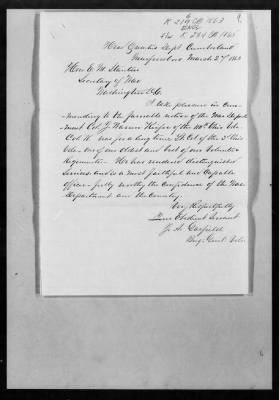 K 219 CB 1863
K 284 CB 1865
Head Quarters Dept Cumberland
Murfreesboro March 27th 1863
Hon E. M. Stanton
Secretary of War
Washington D.C.
I take pleasure in com-
mending to the favorable notice of the War Depart-
ment Col J. Warren Keifer of the 110th Ohio Vols
Col K. was for a long time Lt Col of the 3d Ohio
Vols - one of our oldest and best of our Volunteer
Regiments - He has rendered distinguished
Services and is a most faithful and Capable
officer - fully worthy the Confidence of the War
Department and the Country.
Very Respectfully
Your Obedient Servant
J. A. Garfield
Brig. Genl Vols